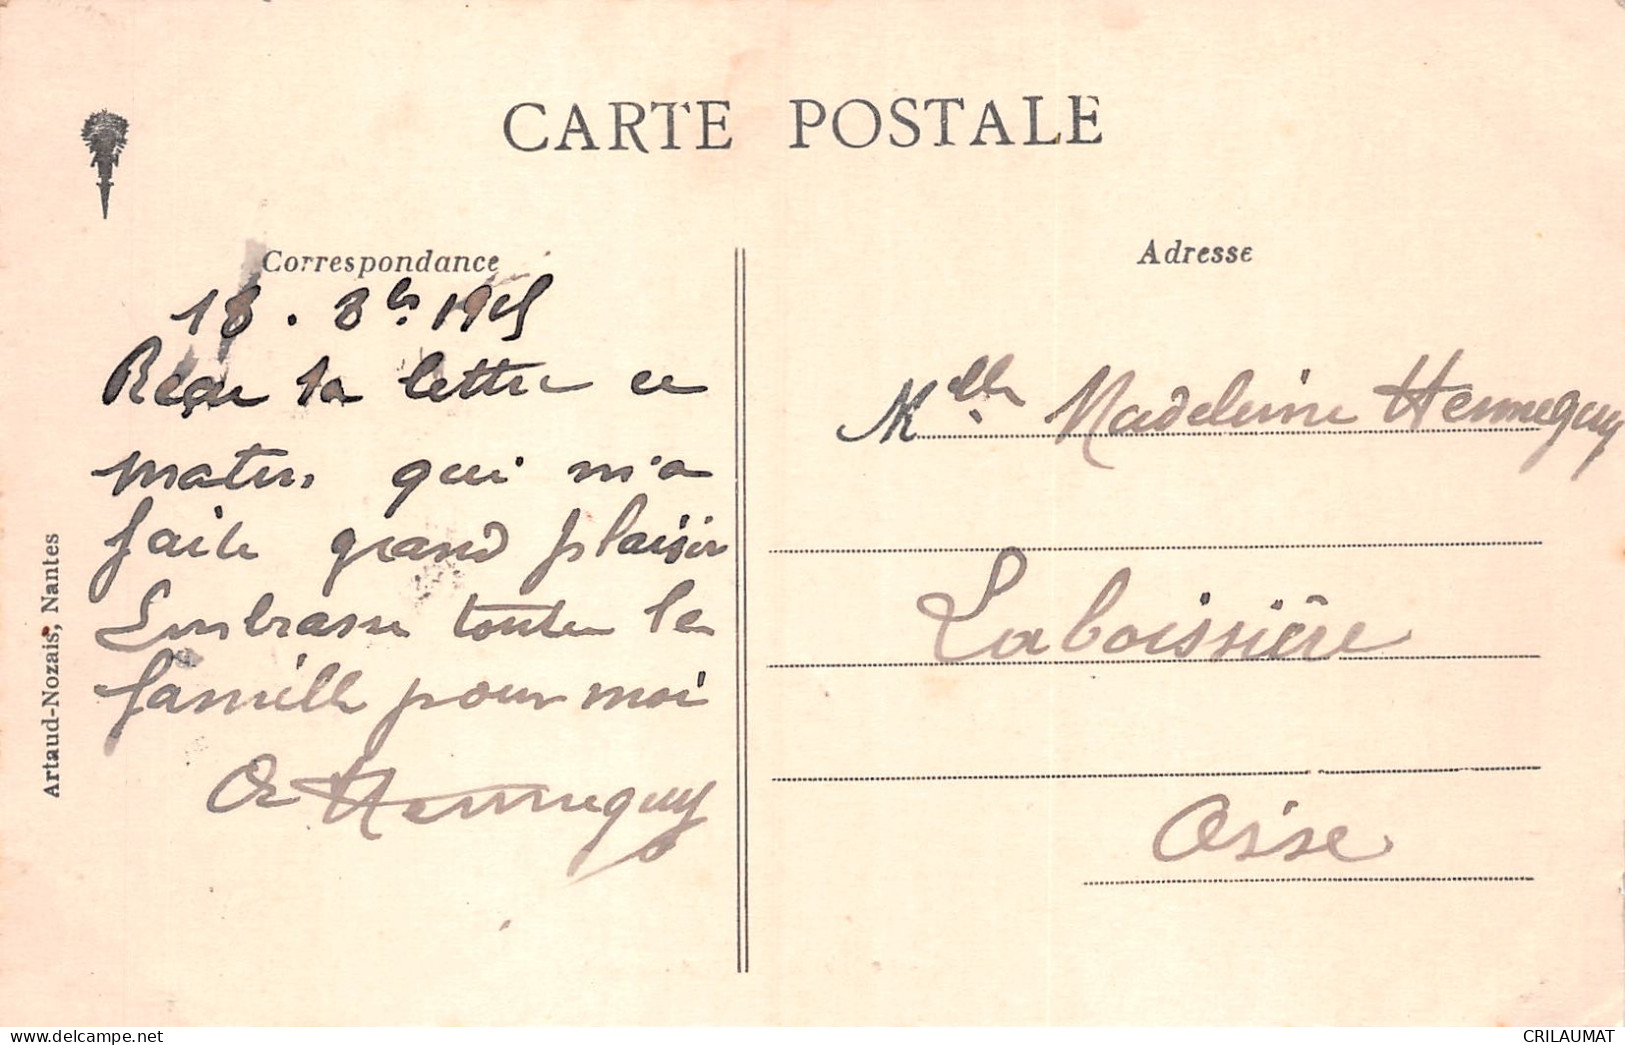 CARTE POSTALE
Correspondance
18. 8bre 1915
Reçu ta lettre ce
matin, qui m'a
faite grand plaisir
Embrasse toute la
famille pour moi
Hennequy
Artaud-Nozais, Nantes
Adresse
Melle Madeleine Hennequy
Laboissière
Oise
CRILAUMAT